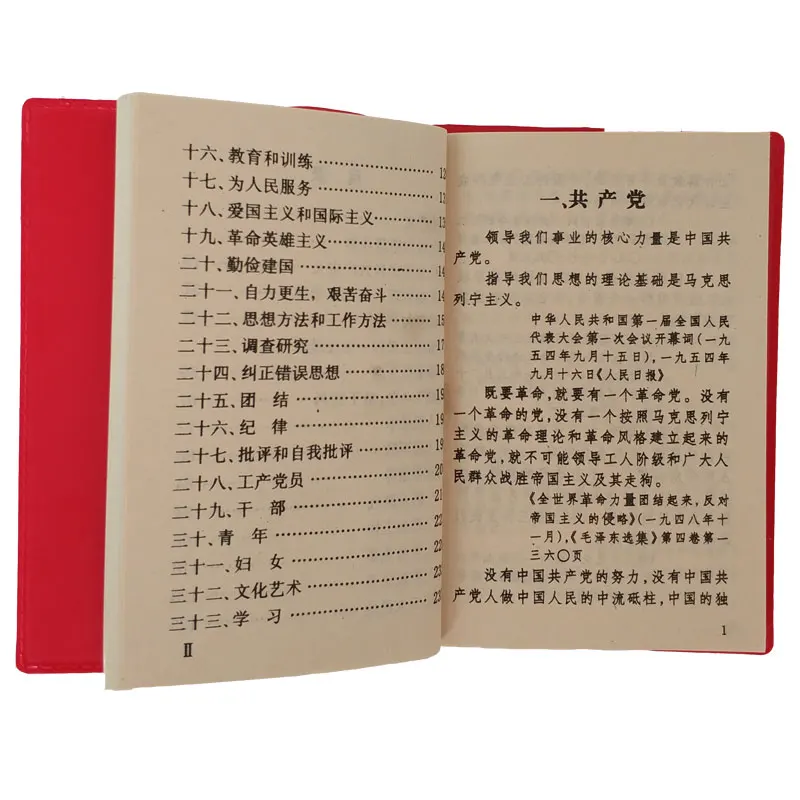 十六、教育和训练………………12
十七、为人民服务………………1
十八、爱国主义和国际主义………13
十九、革命英雄主义………………14
二十、勤俭建国………………14
二十一、自力更生，艰苦奋斗………14
二十二、思想方法和工作方法………15
二十三、调查研究………………17
二十四、纠正错误思想………………18
二十五、团　结………………19
二十六、纪　律………………19
二十七、批评和自我批评………………19
二十八、工产党员………………20
二十九、干　部………………21
三十、青　年………………22
三十一、妇　女………………22
三十二、文化艺术………………23
三十三、学　习………………23
II
一、共产党
领导我们事业的核心力量是中国共
产党。
指导我们思想的理论基础是马克思
列宁主义。
中华人民共和国第一届全国人民
代表大会第一次会议开幕词(一九
五四年九月十五日)，一九五四年
九月十六日《人民日报》
既要革命，就要有一个革命党。没有
一个革命的党，没有一个按照马克思列宁
主义的革命理论和革命风格建立起来的
革命党，就不可能领导工人阶级和广大人
民群众战胜帝国主义及其走狗。
《全世界革命力量团结起来，反对
帝国主义的侵略》(一九四八年十
一月)，《毛泽东选集》第四卷第一
三六〇页
没有中国共产党的努力，没有中国共
产党人做中国人民的中流砥柱，中国的独
1